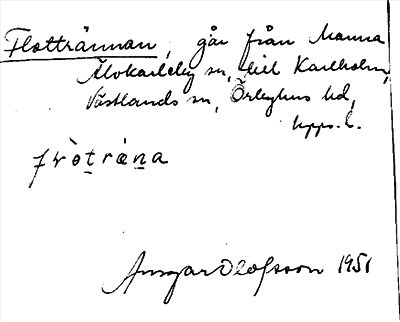 Flottrännan, går från Marma
Älvkarleby sn, till Karlholm,
Västlands sn, Örbyhus hd,
Upps. l.
frȯ̀tṟäṉa
Ansgar Olofsson 1951